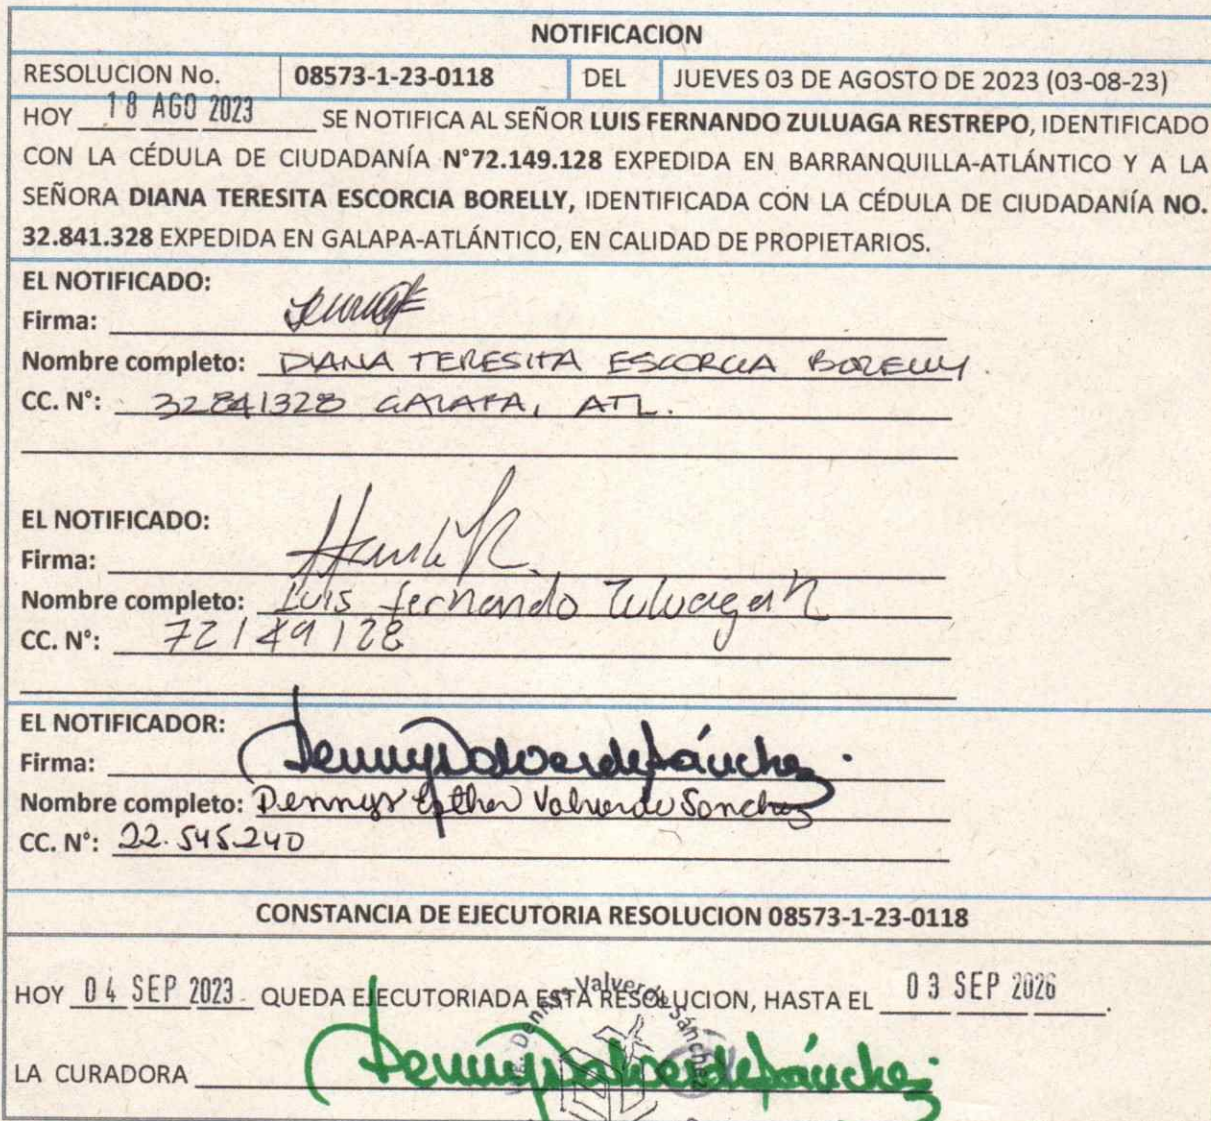 NOTIFICACION
RESOLUCION No. 08573-1-23-0118 DEL JUEVES 03 DE AGOSTO DE 2023 (03-08-23)
HOY 18 AGO 2023 SE NOTIFICA AL SEÑOR LUIS FERNANDO ZULUAGA RESTREPO, IDENTIFICADO
CON LA CÉDULA DE CIUDADANÍA N°72.149.128 EXPEDIDA EN BARRANQUILLA-ATLÁNTICO Y A LA
SEÑORA DIANA TERESITA ESCORCIA BORELLY, IDENTIFICADA CON LA CÉDULA DE CIUDADANÍA NO.
32.841.328 EXPEDIDA EN GALAPA-ATLÁNTICO, EN CALIDAD DE PROPIETARIOS.
EL NOTIFICADO:
Firma:
Nombre completo: DIANA TERESITA ESCORCIA BORELLY.
CC. N°: 32841328 GALAPA, ATL.
EL NOTIFICADO:
Firma:
Nombre completo: Luis fernando Zuluaga R
CC. N°: 72149128
EL NOTIFICADOR:
Firma: Dennys Valverde Sánchez.
Nombre completo: Dennys Esther Valverde Sanchez
CC. N°: 22.545.240
CONSTANCIA DE EJECUTORIA RESOLUCION 08573-1-23-0118
HOY 04 SEP 2023 QUEDA EJECUTORIADA ESTA RESOLUCION, HASTA EL 03 SEP 2026.
Dennys Valverde Sánchez
LA CURADORA Dennys Valverde Sánchez.